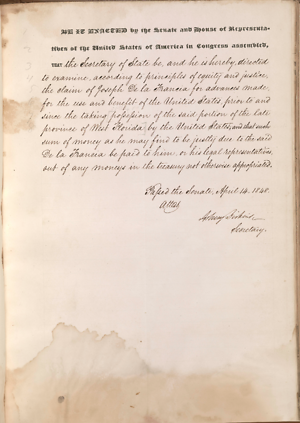 BE IT ENACTED by the Senate and House of Representa-
tives of the United States of America in Congress assembled,
THAT the Secretary of State be, and he is hereby, directed
to examine, according to principles of equity and justice,
the claim of Joseph De la Francia for advances made,
for the use and benefit of the United States, prior to and
since the taking possession of the said portion of the late
province of West Florida, by the United States, and that such
sum of money as he may find to be justly due to the said
De la Francia be paid to him, or his legal representatives,
out of any moneys in the treasury not otherwise appropriated.
Passed the Senate, April 14, 1840.
Attest
Asbury Dickins
Secretary.